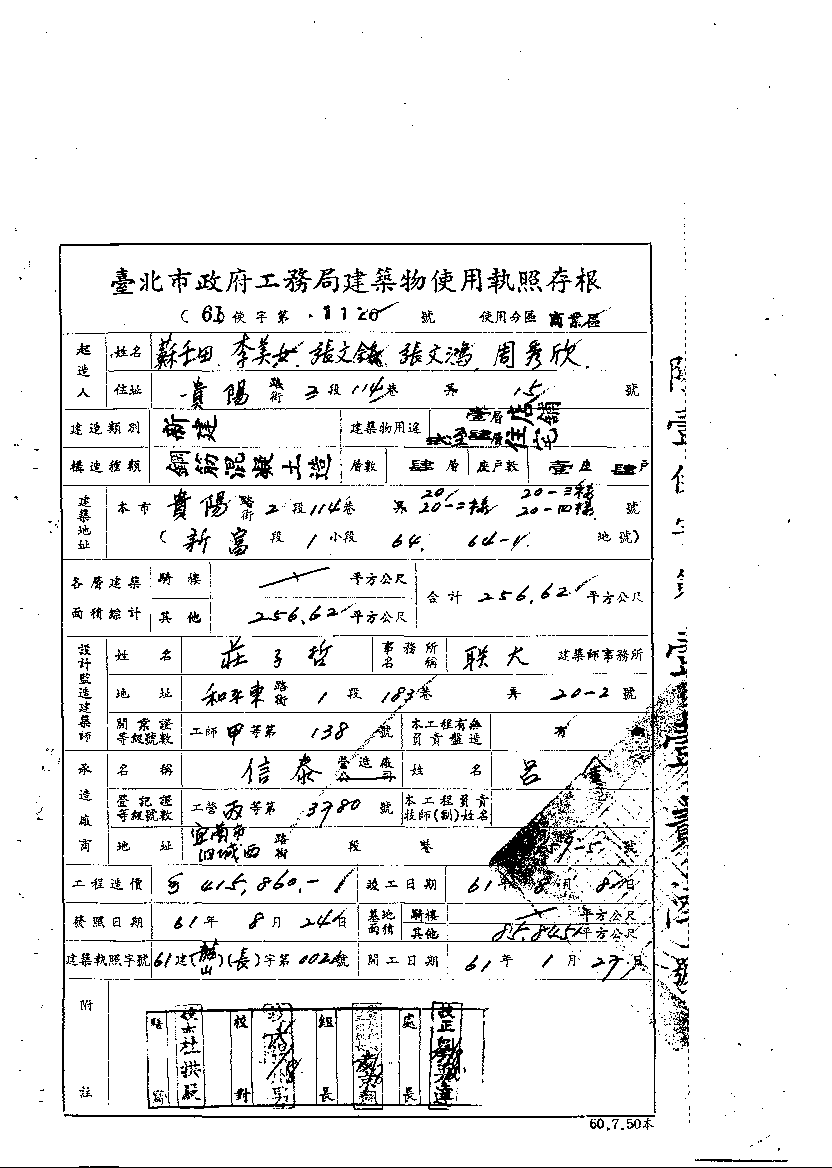 臺北市政府工務局建築物使用執照存根
(61使字第 1126 號 使用分區 商業區
起造人 姓名 蘇壬田 李美女 張文銘 張文鴻 周秀欣
住址 貴陽 路街 2段 114巷 弄 15 號
建造類別 新建 建築物用途 壹層店舖 貳至肆層住宅
構造種類 鋼筋混凝土造 層數 肆層 座戶數 壹座 肆戶
建築地址 本市 貴陽 路街 2段 114巷 弄 20 20-二樓 20-三樓 20-四樓 號
( 新富 段 1 小段 64. 64-1 地號)
各層建築面積綜計 騎樓 平方公尺 合計 256.62 平方公尺
其他 256.62 平方公尺
設計監造建築師 姓名 莊子哲 事務所名稱 联大 建築師事務所
地址 和平東 路街 1段 183巷 弄 20-2 號
開業證等級號數 工師 甲 等第 138 號 本工程有無負責監造 有
承造廠商 名稱 信泰 營造廠公司 姓名 呂金
登記證等級號數 工營 丙 等第 3980 號 本工程負責技師(副)姓名
地址 宜蘭市旧城西 路街 段 巷 59-5 號
工程造價 $ 415,860.- 竣工日期 61年 8月 8日
發照日期 61年 8月 24日 基地面積 騎樓 平方公尺
其他 85.845 平方公尺
建築執照字號 61建(龍山)(長)字第002號 開工日期 61年 1月 27日
附註
校對 組長 處長
60.7.50本